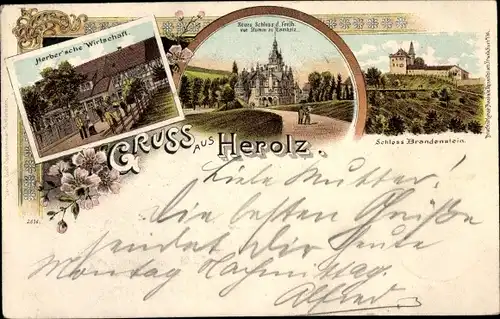 Herber'sche Wirtschaft.
Neues Schloss d. Freih.
von Stumm zu Ramholz.
Schloss Brandenstein.
GRUSS AUS Herolz.
Liebe Mutter!
Die besten Grüße
sendet Dir heute
Montag Nachmittag.
Alfred